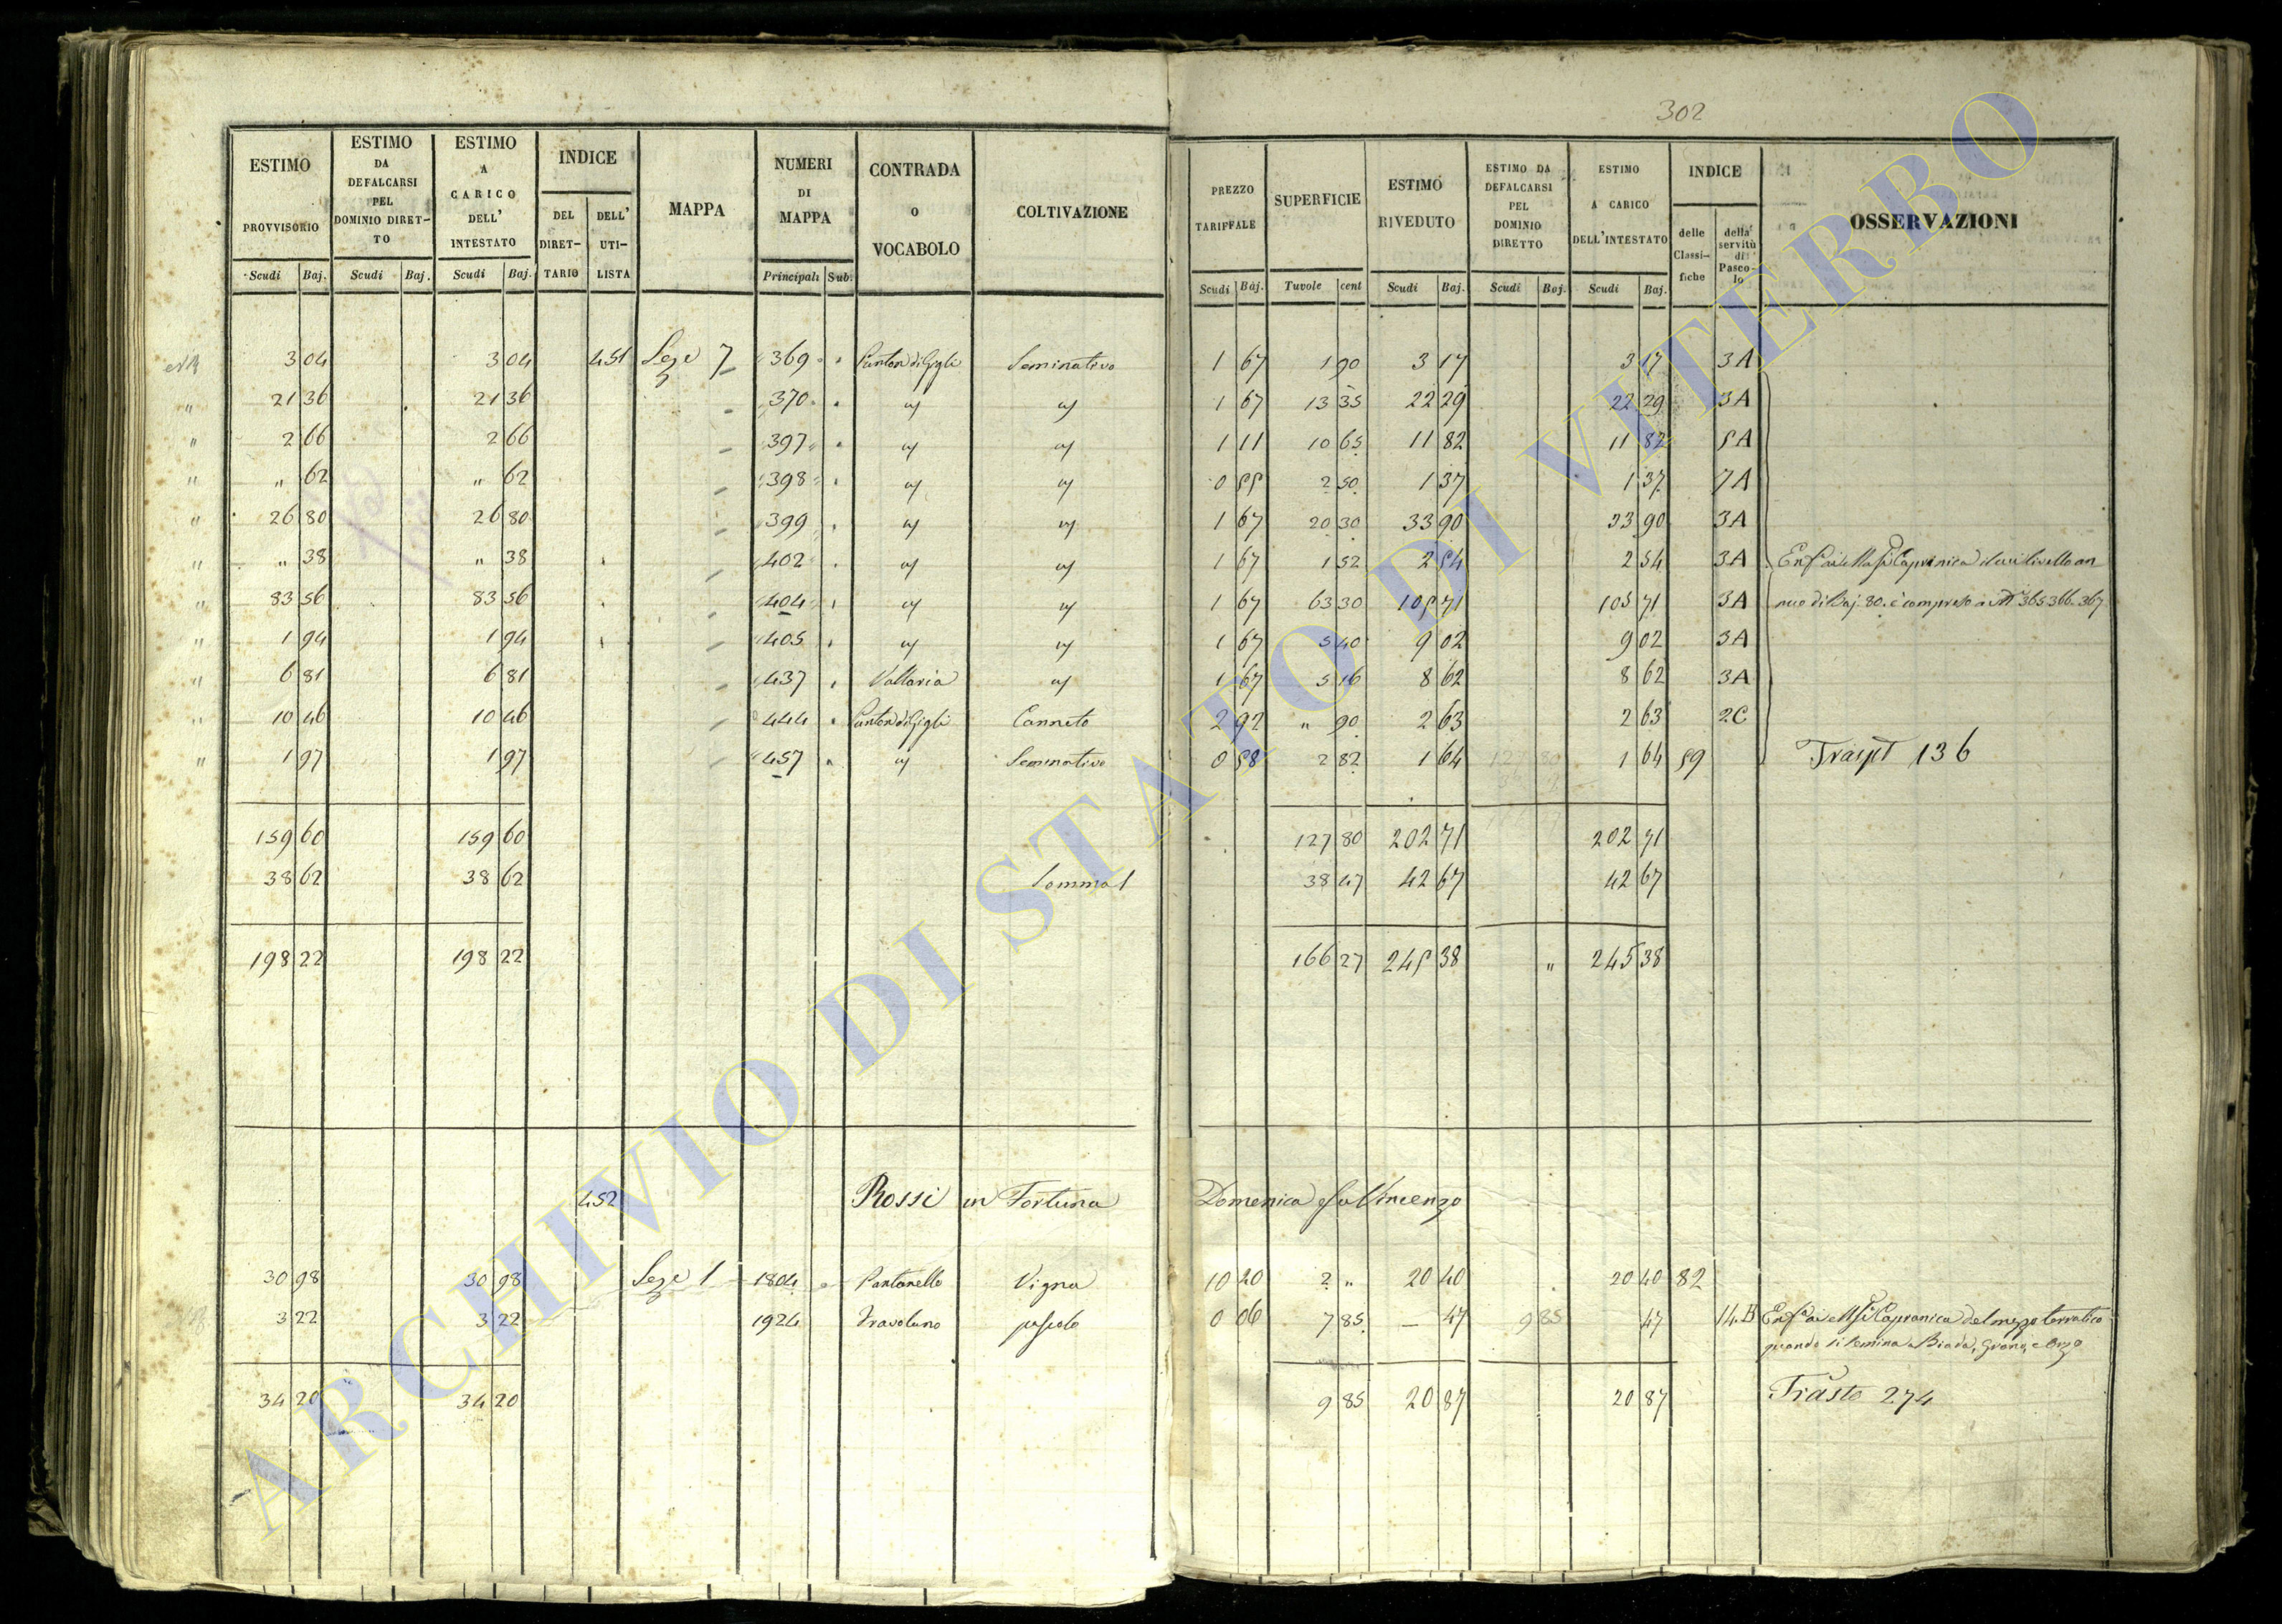 302
ESTIMO PROVVISORIO Scudi Baj. ESTIMO DA DEFALCARSI PEL DOMINIO DIRETTO Scudi Baj. ESTIMO A CARICO DELL' INTESTATO Scudi Baj. INDICE DEL DIRETTARIO DELL' UTILISTA MAPPA NUMERI DI MAPPA Principali Sub. CONTRADA O VOCABOLO COLTIVAZIONE PREZZO TARIFFALE Scudi Baj. SUPERFICIE Tavole cent ESTIMO RIVEDUTO Scudi Baj. ESTIMO DA DEFALCARSI PEL DOMINIO DIRETTO Scudi Baj. ESTIMO A CARICO DELL'INTESTATO Scudi Baj. INDICE delle Classifiche della servitù di Pascolo OSSERVAZIONI
3 04 3 04 451 Seze 7 369 Seminativo 1 67 1 90 3 17 3 17 3A
" 21 36 21 36 370 1 67 13 35 22 29 22 29 3A
" 2 66 2 66 397 1 11 10 65 11 82 11 82 5A
" " 62 " 62 398 0 55 2 50 1 37 1 37 7A
" 26 80 26 80 399 1 67 20 30 33 90 33 90 3A
" " 38 " 38 402 1 67 1 52 2 54 2 54 3A
" 83 56 83 56 404 1 67 63 30 105 71 105 71 3A nuo di Baj. 80. è compreso 365 366 367
" 1 94 1 94 405 1 67 5 40 9 02 9 02 3A
" 6 81 6 81 437 Vallaria 1 67 5 16 8 62 8 62 3A
" 10 46 10 46 444 Canneto 2 92 " 90 2 63 2 63 2C
" 1 97 1 97 457 Seminativo 0 58 2 82 1 64 1 64 59 Traspt 136
159 60 159 60 127 80 202 71 202 71
38 62 38 62 Somma 1 38 47 42 67 42 67
198 22 198 22 166 27 245 38 " 245 38
452 Rossi in Fortuna Domenica fu Vincenzo
30 98 30 98 Seze 1 1804 Pantanello Vigna 10 20 2 " 20 40 20 40 82
3 22 3 22 1924 pascolo 0 06 7 85 — 47 9 85 47 14.B Capranica del mezzo terratico
quando si semina Biada, Grano, e Orzo
34 20 34 20 9 85 20 87 20 87 Trasto 274
ARCHIVIO DI STATO DI VITERBO